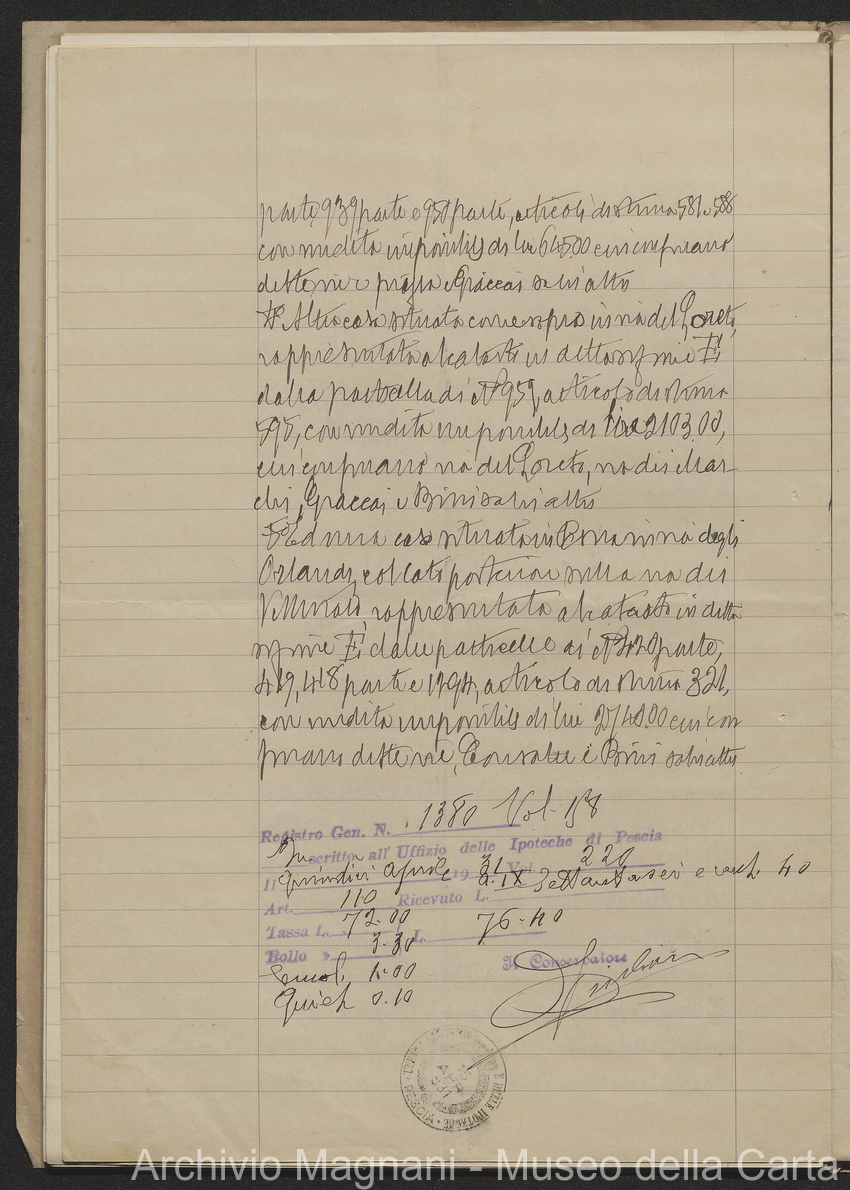 parte, 939 parte e 950 parte, articoli di stima 581 e 588
con rendita imponibile di lire 645.00 cui confinano
dette vie piazza e Graccai salvi altri
Altra casa situata come sopra in via del Loreto,
rappresentata al catasto in detta sezione F,
dalla particella di N° 959, articolo di stima
595, con rendita imponibile di lire 2103.00,
cui confinano via del Loreto, via dei Mar
chi, Graccai e Bini salvi altri
Ed una casa situata in Pescia in via degli
Orlandi, e col lato posteriore sulla via dei
rappresentata al catasto in detta
sezione F, dalle particelle di N° 420 parte,
419, 418 parte e 1794, articolo di stima 321,
con rendita imponibile di lire 2740.00 cui con
finano dette vie, e Bini salvi altri
Registro Gen. N. 1380 Vol. 158
Inscritto all' Uffizio delle Ipoteche di Pescia
Il quindici Aprile 1931 Vol. 220
Art. 110 Ricevuto L. Settantasei e cent. 40
Tassa L. 72.00 L. 76.40
Bollo » 3.30
Emol. 1.00
Quiet. 0.10
Il Conservatore
PESCIA
Archivio Magnani - Museo della Carta